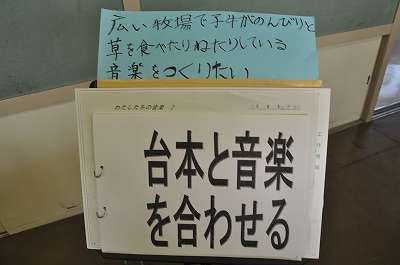 広い牧場で子牛がのんびりと
草を食べたりねたりしている
音楽をつくりたい
わたしたちの音楽 2
台本と音楽
を合わせる